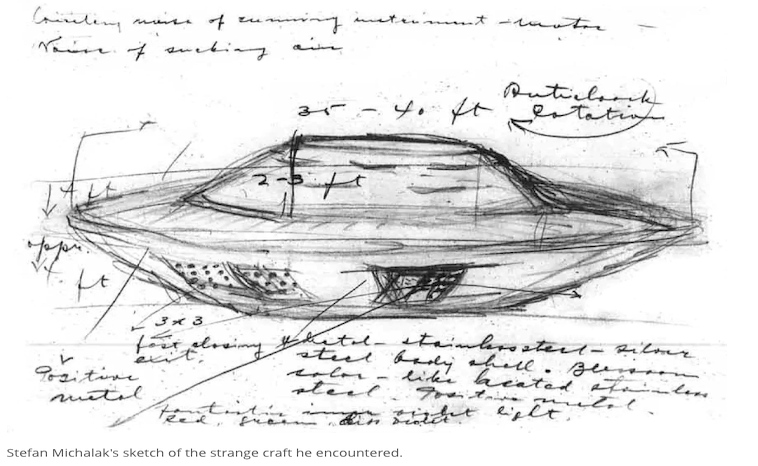 noise of running instrument - motor -
Noise of sucking air
Anticlock
rotation
35 - 40 ft
2-3 ft
4 ft
appr.
4 ft
3x3
fast closing
exit.
Metal - stainless steel - silver
steel body shell.
color - like heated stainless
steel. Positive metal.
Positive
metal
Fantastic inner light.
Red, green, violet.
Stefan Michalak's sketch of the strange craft he encountered.